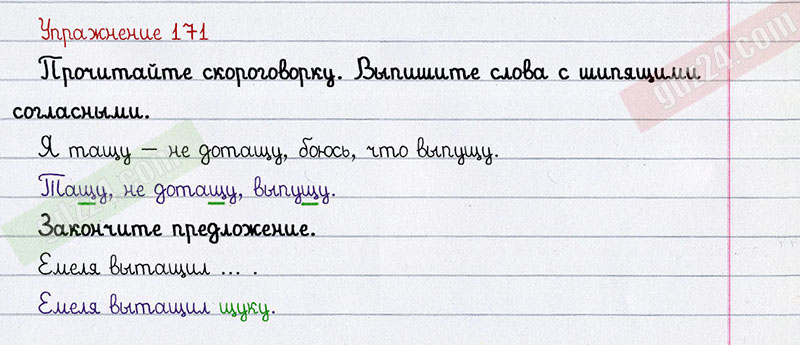 Упражнение 171
Прочитайте скороговорку. Выпишите слова с шипящими
согласными.
Я тащу – не дотащу, боюсь, что выпущу.
Тащу, не дотащу, выпущу.
Закончите предложение.
Емеля вытащил ... .
Емеля вытащил щуку.
gdz24.com
gdz24.com